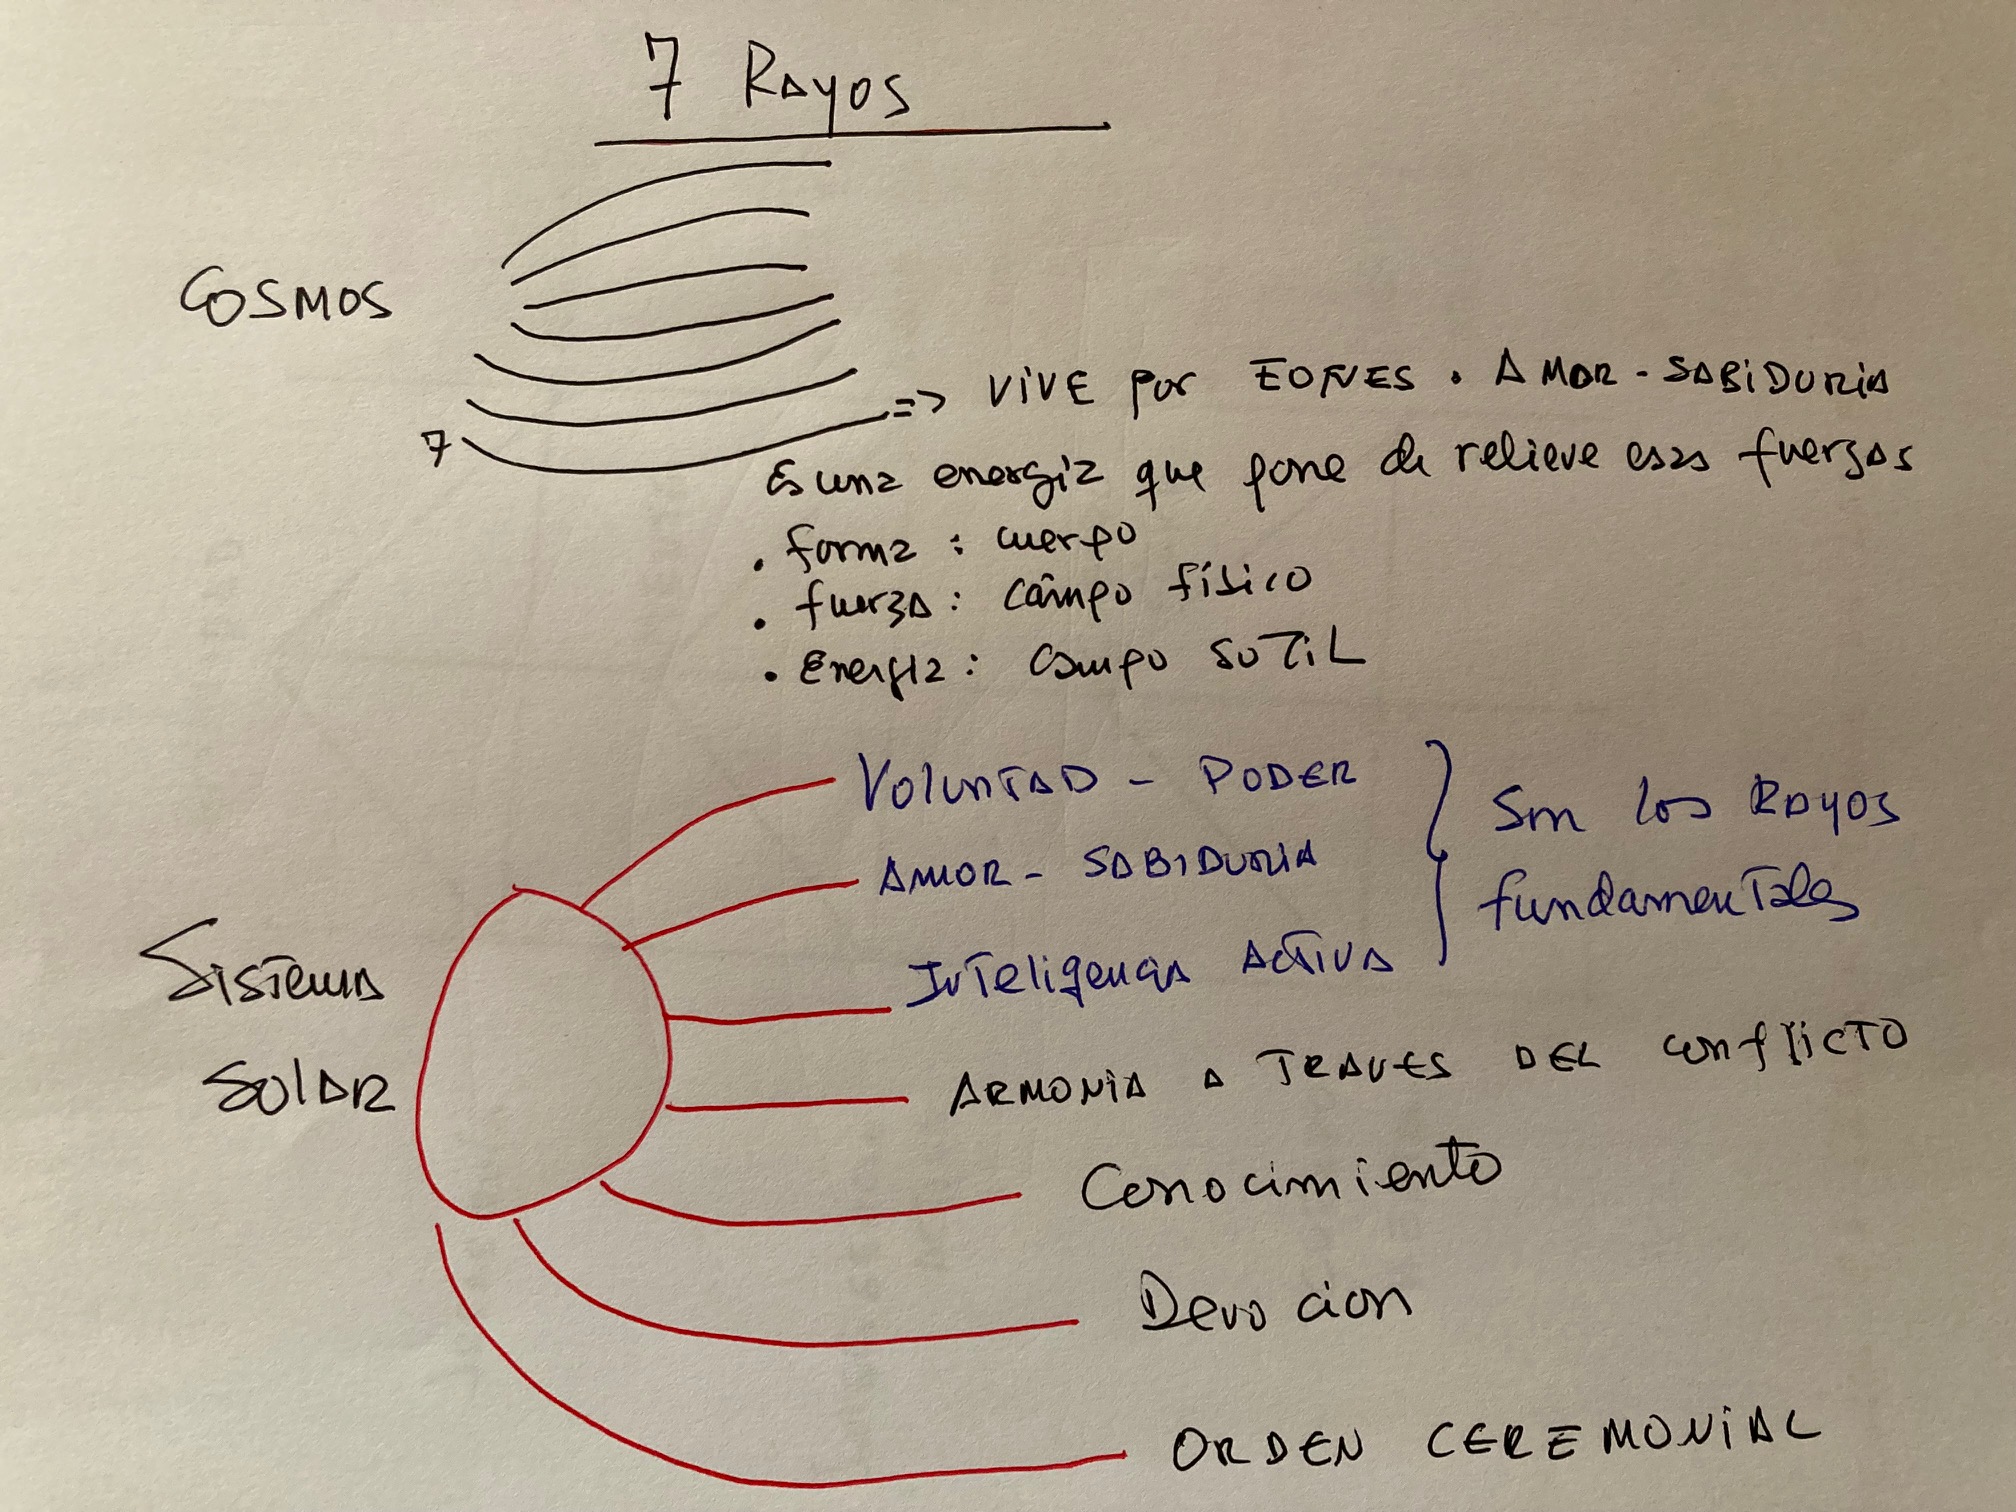 7 RAYOS
COSMOS
7
=> VIVE por EONES . AMOR - SABIDURIA
Es una energia que pone de relieve esas fuerzas
. forma : cuerpo
. fuerza : campo físico
. Energia : campo SUTIL
VOLUNTAD - PODER
AMOR - SABIDURIA
INTeligencia ACTIVA
Son los RAYOS
fundamentales
Sistema
Solar
ARMONIA A TRAVES DEL conflicTO
Conocimiento
Devocion
ORDEN CEREMONIAL